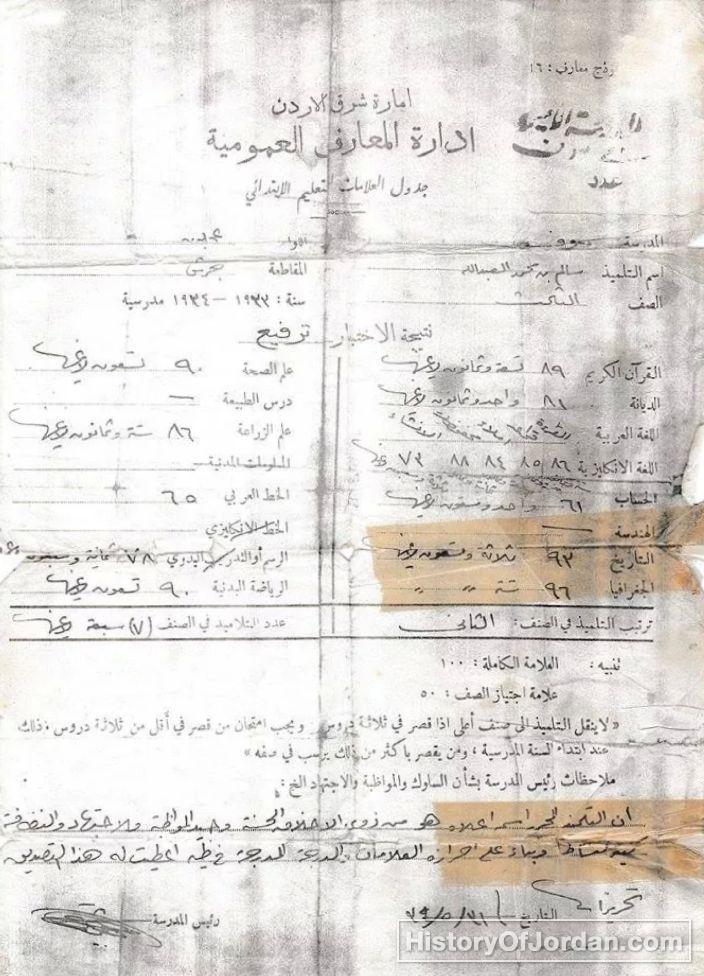 معارف : ١٦
امارة شرق الاردن
ادارة المعارف العمومية
عدد
جدول العلامات للتعليم الابتدائي
المدرسة سوف
اللواء عجلون
اسم التلميذ سالم بن محمد العبدالله
المقاطعة جرش
الصف الثالث
سنة : ١٩٣٣ – ١٩٣٤ مدرسية
نتيجة الاختبار ترفيع
القرآن الكريم ٨٩ تسعة وثمانون لاغير
علم الصحة ٩٠ تسعون لاغير
الديانة ٨١ واحد وثمانون لاغير
درس الطبيعة –
اللغة العربية
علم الزراعة ٨٦ ستة وثمانون لاغير
اللغة الانكليزية ٨٦ ٨٥ ٨٤ ٨٨ ٧٣
المعلومات المدنية –
الحساب ٦١ واحد وستون لاغير
الخط العربي ٦٥
الهندسة —
الخط الانكليزي
التاريخ ٩٣ ثلاثة وتسعون لاغير
الرسم أو التدريب اليدوي ٧٨ ثمانية وسبعون
الجغرافيا ٩٦ ستة " "
الرياضة البدنية ٩٠ تسعون لاغير
ترتيب التلميذ في الصف : الثاني
عدد التلاميذ في الصف (٧) سبعة لاغير
تنبيه : العلامة الكاملة : ١٠٠
علامة اجتياز الصف : ٥٠
« لا ينقل التلميذ الى صنف أعلى اذا قصر في ثلاثة دروس . ويجب امتحان من قصر في أقل من ثلاثة دروس ، ذلك
عند ابتداء السنة المدرسية ، ومن يقصر بأكثر من ذلك يرسب في صفه »
ملاحظات رئيس المدرسة بشأن السلوك والمواظبة والاجتهاد الخ :
أن التلميذ المحرر اسمه اعلاه هو من ذوي الاخلاق الحسنة وحسن المواظبة والاجتهاد والنظافة
وبناء على احرازه العلامات المدرجة اعطيت له هذا التصديق
تحريرا
التاريخ ٣١/٥/٣٤
رئيس المدرسة
HistoryOfJordan.com